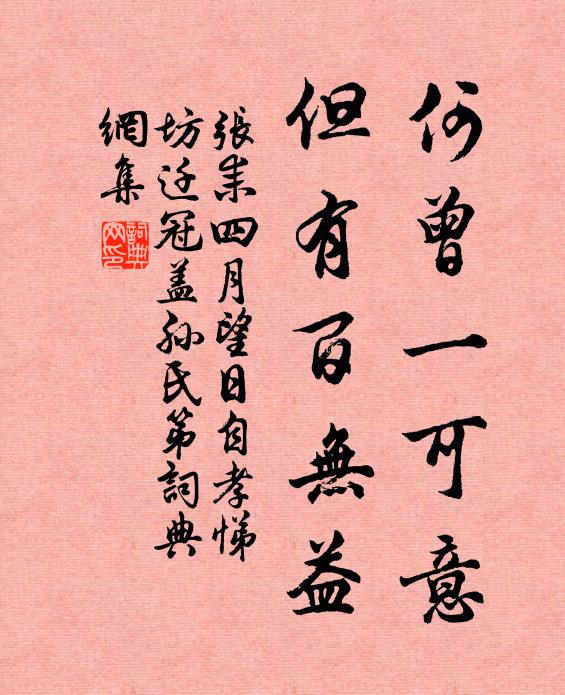 何曾一可意
但有百無益
張耒四月望日自孝悌
坊迁冠盖孙氏第詞典
網集
詞典網印